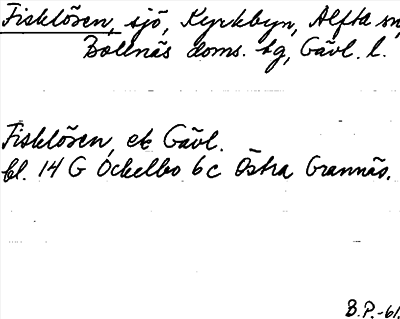 Fisklösen, sjö, Kyrkbyn, Alfta sn,
Bollnäs doms. tg, Gävl. l.
Fisklösen, ek Gävl.
bl. 14 G Ockelbo 6c Östra Grannäs.
B.P.-61.